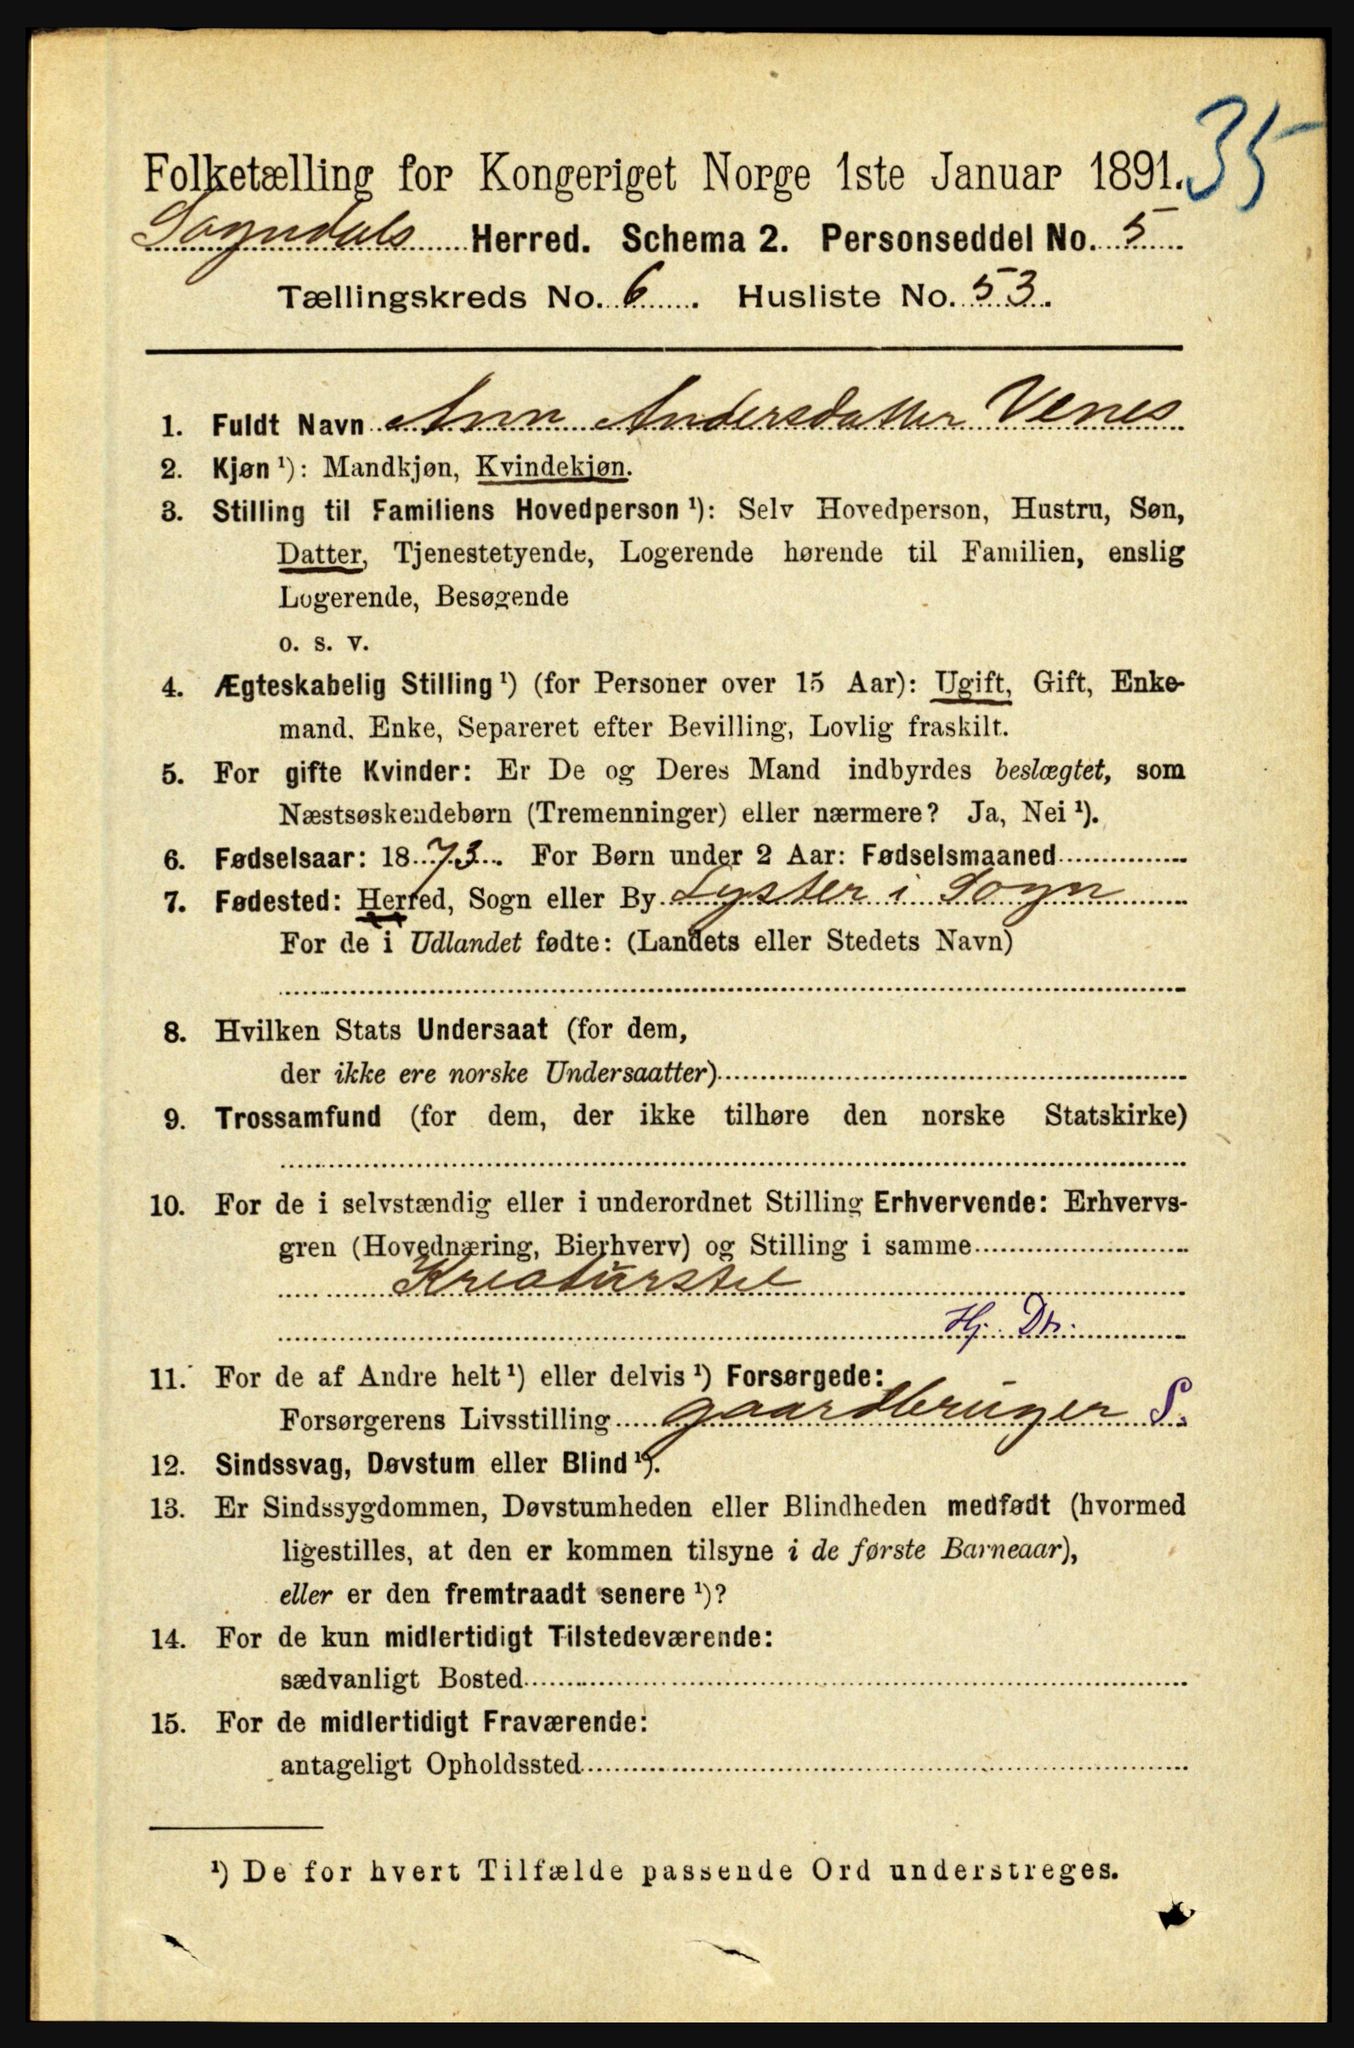 35
Folketælling for Kongeriget Norge 1ste Januar 1891.
Sogndals Herred. Schema 2. Personseddel No. 5
Tællingskreds No. 6. Husliste No. 53.
1. Fuldt Navn Ann Andersdatter Venes
2. Kjøn ¹): Mandkjøn, Kvindekjøn.
3. Stilling til Familiens Hovedperson ¹): Selv Hovedperson, Hustru, Søn,
Datter, Tjenestetyende, Logerende hørende til Familien, enslig
Logerende, Besøgende
o. s. v.
4. Ægteskabelig Stilling ¹) (for Personer over 15 Aar): Ugift, Gift, Enke-
mand, Enke, Separeret efter Bevilling, Lovlig fraskilt.
5. For gifte Kvinder: Er De og Deres Mand indbyrdes beslægtet, som
Næstsøskendebørn (Tremenninger) eller nærmere? Ja, Nei ¹).
6. Fødselsaar: 1873. For Børn under 2 Aar: Fødselsmaaned
7. Fødested: Herred, Sogn eller By Lyster i Sogn
For de i Udlandet fødte: (Landets eller Stedets Navn)
8. Hvilken Stats Undersaat (for dem,
der ikke ere norske Undersaatter)
9. Trossamfund (for dem, der ikke tilhøre den norske Statskirke)
10. For de i selvstændig eller i underordnet Stilling Erhvervende: Erhvervs-
gren (Hovednæring, Bierhverv) og Stilling i samme
Kreaturstel
Hj. Dtr.
11. For de af Andre helt ¹) eller delvis ¹) Forsørgede:
Forsørgerens Livsstilling gaardbruger S.
12. Sindssvag, Døvstum eller Blind ¹).
13. Er Sindssygdommen, Døvstumheden eller Blindheden medfødt (hvormed
ligestilles, at den er kommen tilsyne i de første Barneaar),
eller er den fremtraadt senere ¹)?
14. For de kun midlertidigt Tilstedeværende:
sædvanligt Bosted
15. For de midlertidigt Fraværende:
antageligt Opholdssted
¹) De for hvert Tilfælde passende Ord understreges.